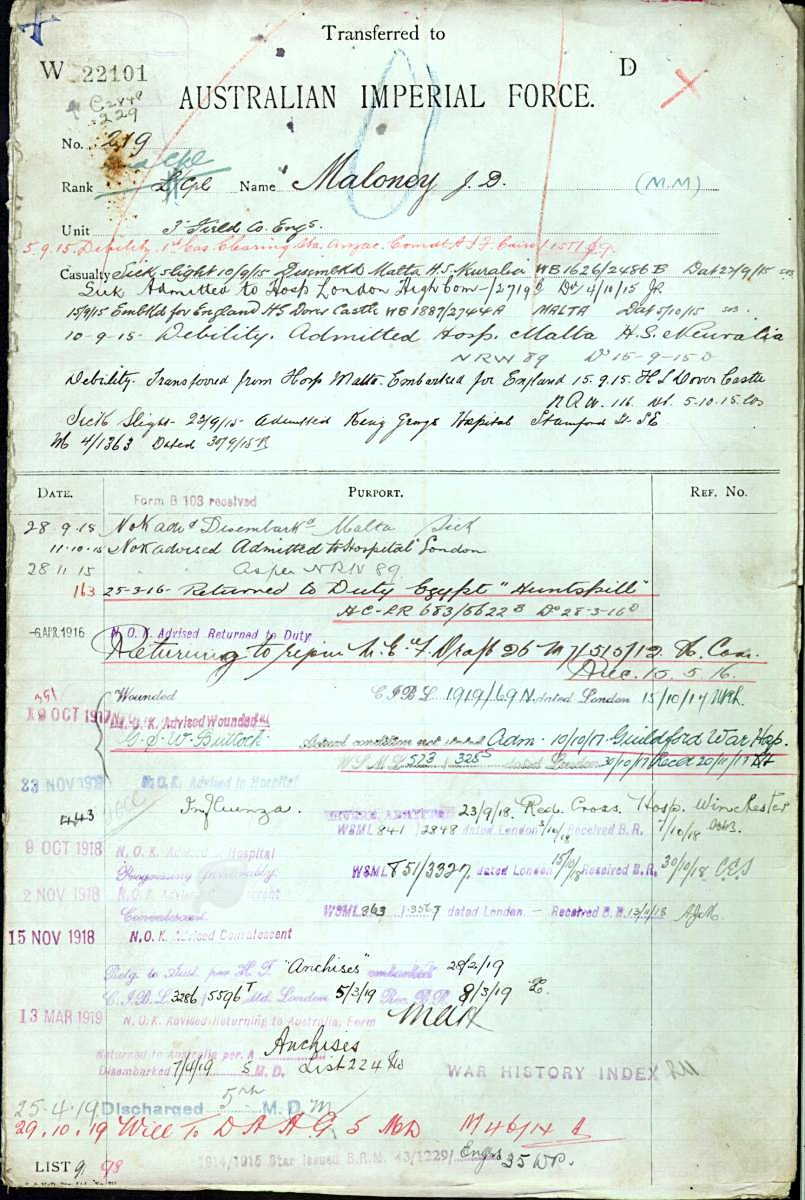 Transferred to
W 22101 D
AUSTRALIAN IMPERIAL FORCE.
No. 219
Rank L/Cpl Name Maloney J. D. (M.M)
Unit Field Co. Engs.
5.9.15 Debility. 1st Cas. Clearing Sta. Anzac.
Casualty Sick slight 10/9/15 Disembkd Malta H.S. Neuralia WB1626/2486B Dat 27/9/15
Sick Admitted to Hosp London High Com 4/10/15
15/9/15 Embkd for England HS Dover Castle WB 1887/2744A MALTA Dat 5/10/15
10-9-15- Debility. Admitted Hosp. Malta H.S. Neuralia
NRW 89 15-9-15
Debility. Transferred from Hosp Malta. Embarked for England 15.9.15. HS Dover Castle
5-10-15
Sick Slight- 23/9/15- admitted King Georges Hospital Stamford St- SE
4/1363 Dated 30/9/15
DATE. PURPORT. REF. NO.
Form B 103 received
28 9 15 NoK adv Disembarkd Malta Sick
11-10-15 NoK advised Admitted to Hospital London
28 11 15 As per NRW 89
163 25-3-16- Returned to Duty Egypt "Huntspill"
683/5622 28-3-16
-6 APR 1916 N.O.K. Advised Returned to Duty
Returning to rejoin Draft 26
15.5.16.
351 Wounded C.I.B.L. 1919/69N dated London 15/10/17
19 OCT 1917 N.O.K. Advised Wounded
G.S.W. Buttock Actual condition not stated Adm. 10/10/17 Guildford War Hosp.
W.S.M.L. 573 3285 dated London 30/10/17 Reced 20/11/17
23 NOV 1917 N.O.K. Advised in Hospital
443 Influenza. 23/9/18. Red. Cross. Hosp. Winchester
WSML 841 2848 dated London 3/10/18 Received B.R. /10/18
9 OCT 1918 N.O.K. Advised Hospital
Progressing favorably. WSML 851/3327 dated London 15/10/18 Received B.R. 30/10/18
2 NOV 1918 N.O.K. Advised
Convalescent. WSML 863 3567 dated London - Received B.R. 13/11/18
15 NOV 1918 N.O.K. Advised Convalescent
Retg. to Aust. per H.T. "Anchises" embarked 28/2/19
C.I.B.L 3286 5596 dtd. London 5/3/19 Rec. B.R. 8/3/19
13 MAR 1919 N.O.K. Advised Returning to Australia, Form
Returned to Australia per. Anchises
Disembarked 7/4/19 5 M.D. List 224
WAR HISTORY INDEX
25-4-19 Discharged 5th M.D.
29.10.19 Will To D A A G. 5 MD M 46/14
LIST 9 98 1914/1915 Star Issued B.R.M. 43/1229/ Engrs 35